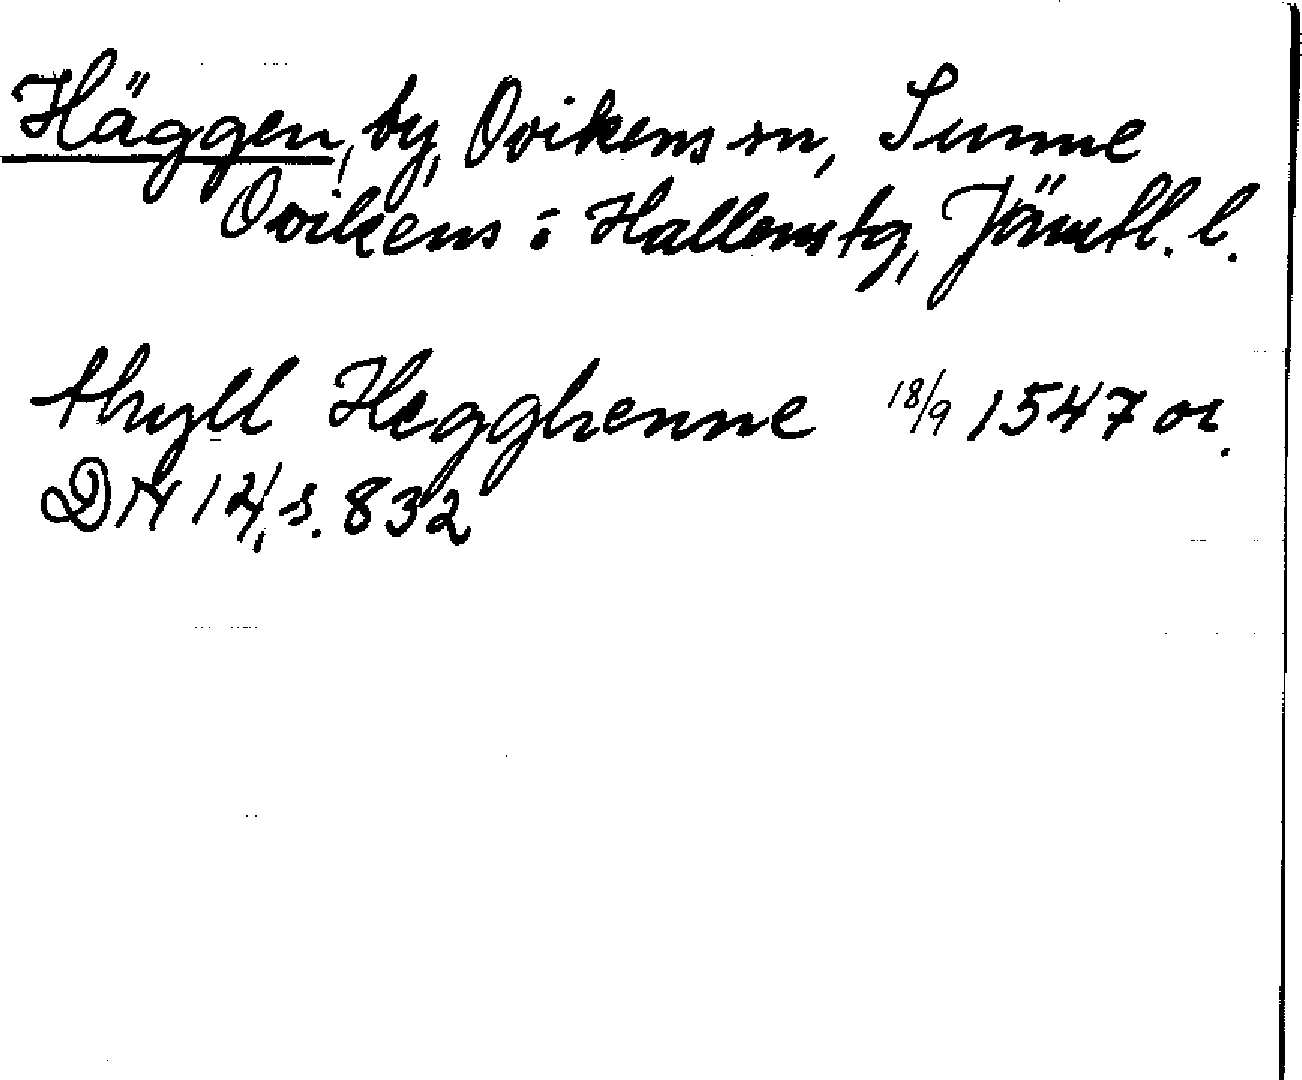 Häggen, by, Ovikens sn, Sunne
Ovikens o Hallens tg, Jämtl. l.
thyll Hegghenne 18/9 1547 or.
DN 14, s. 832